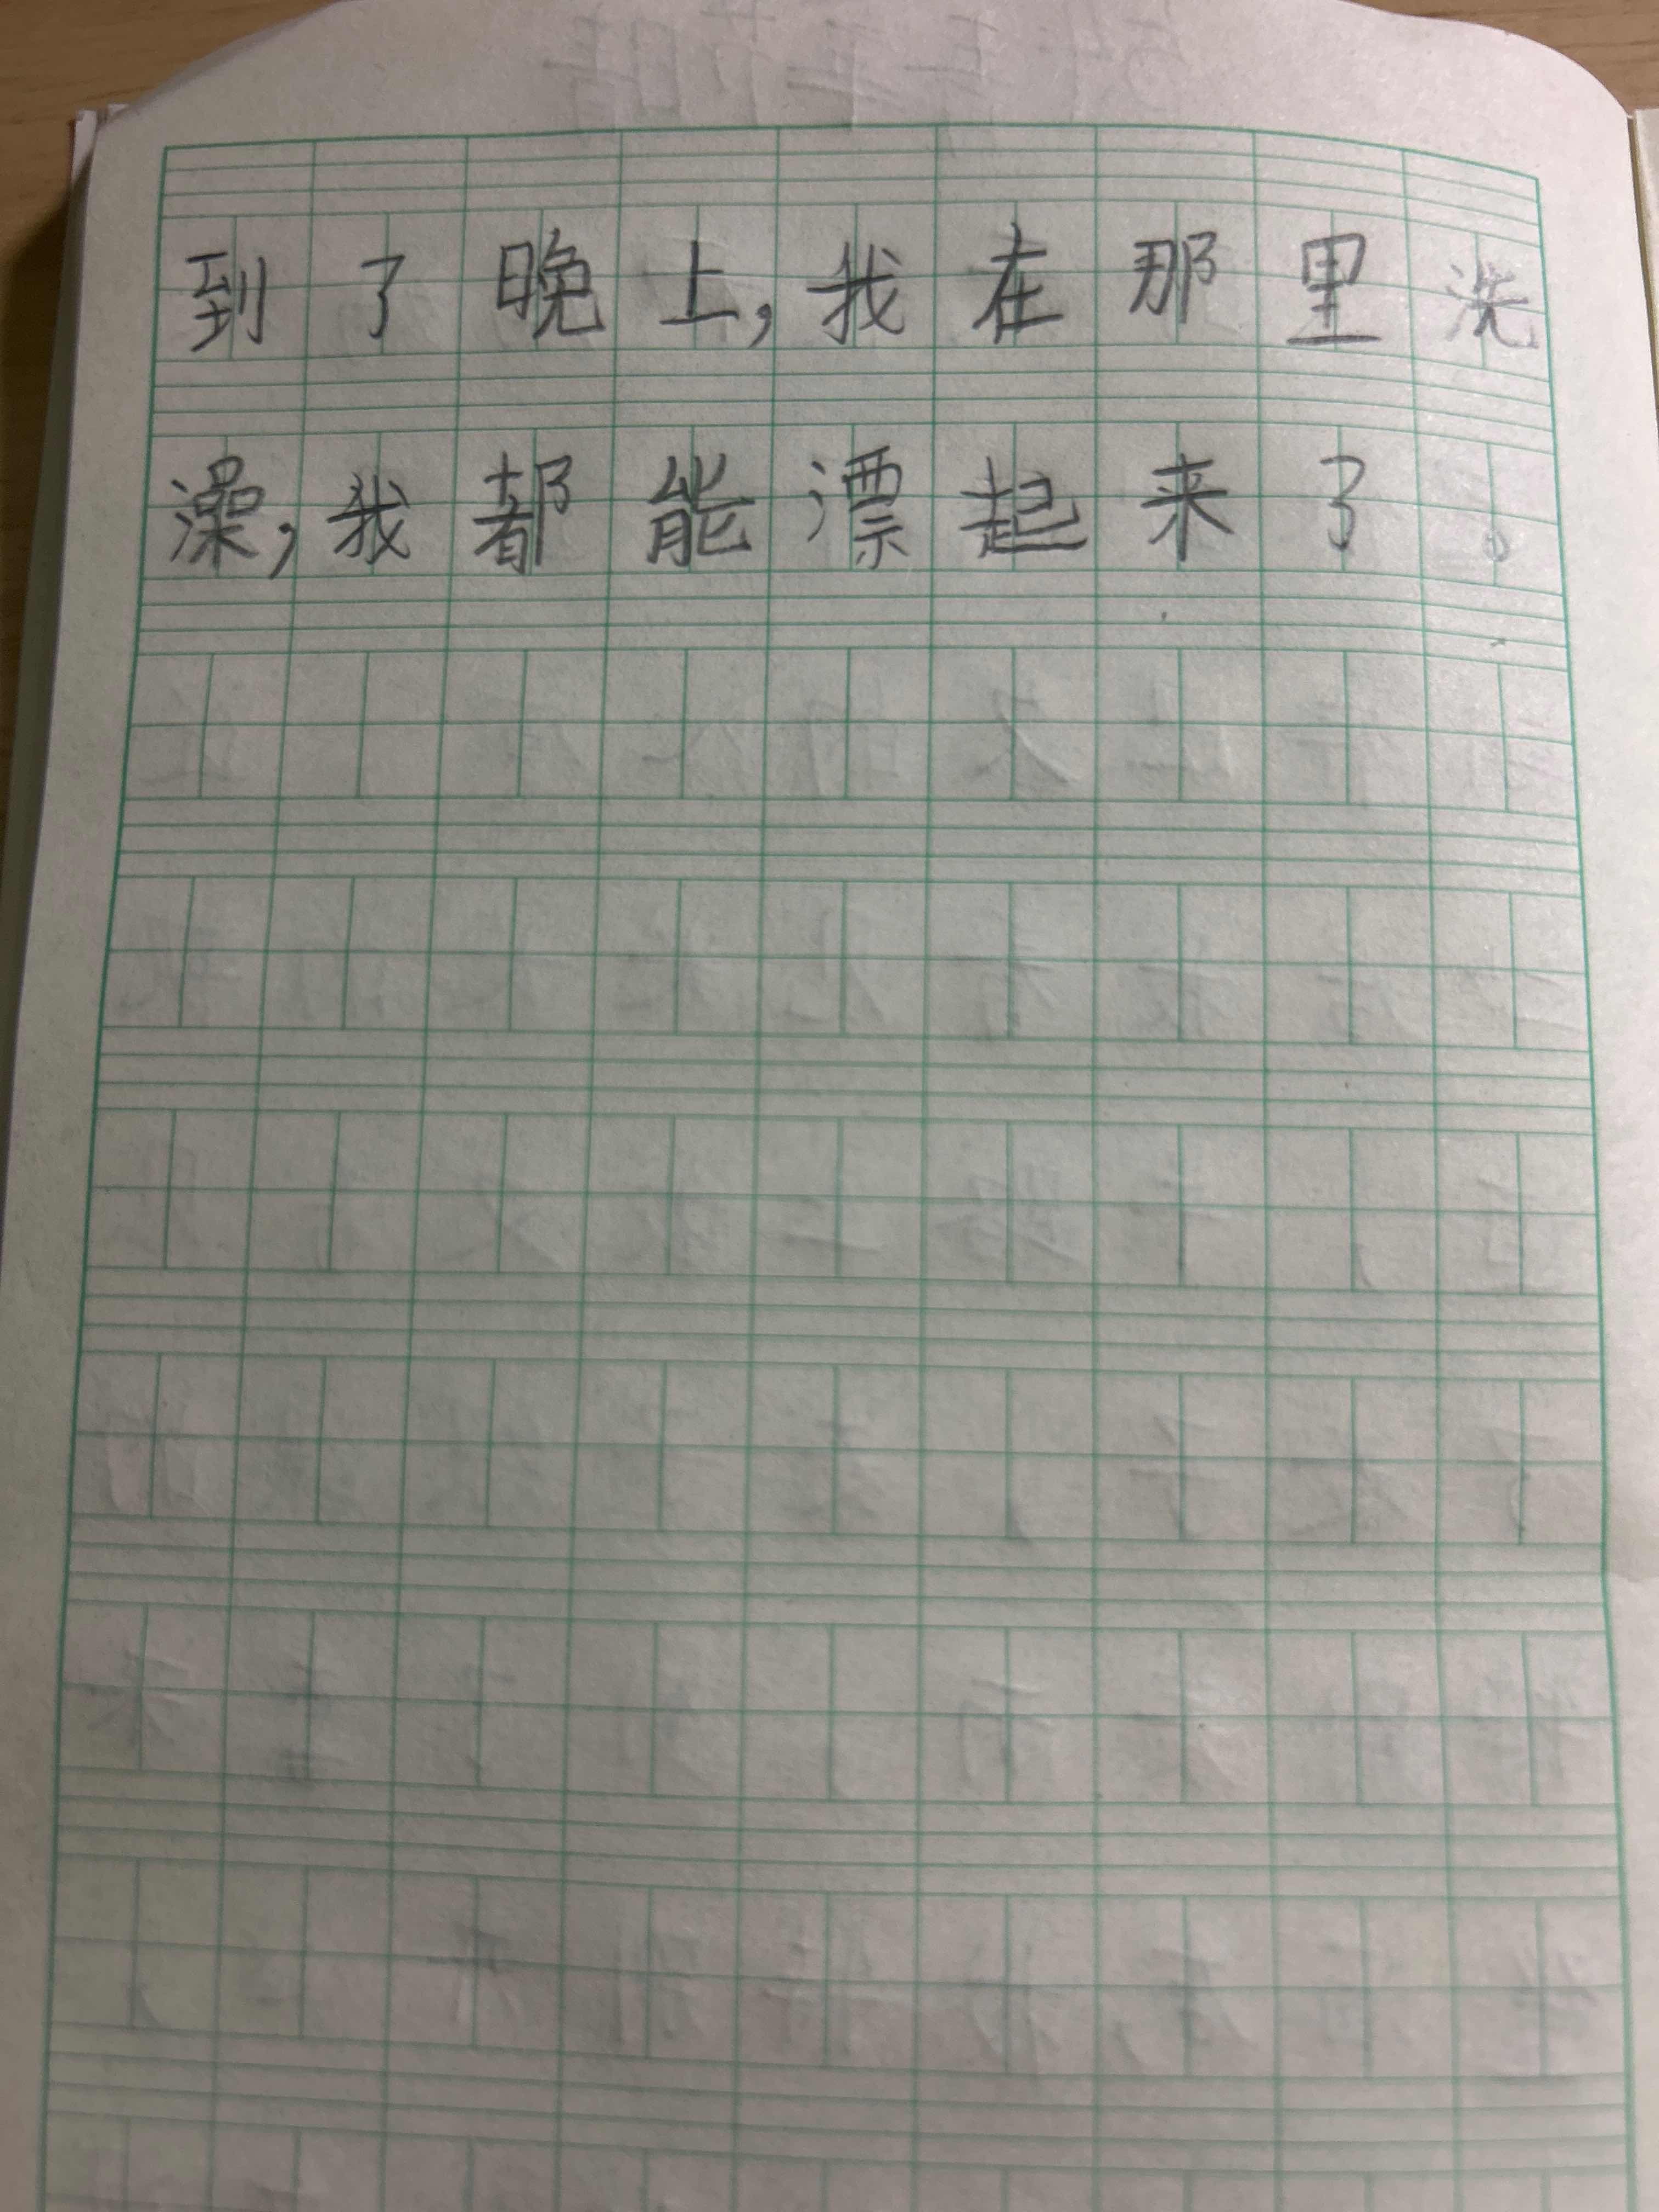 到了晚上,我在那里洗
澡,我都能漂起来了。